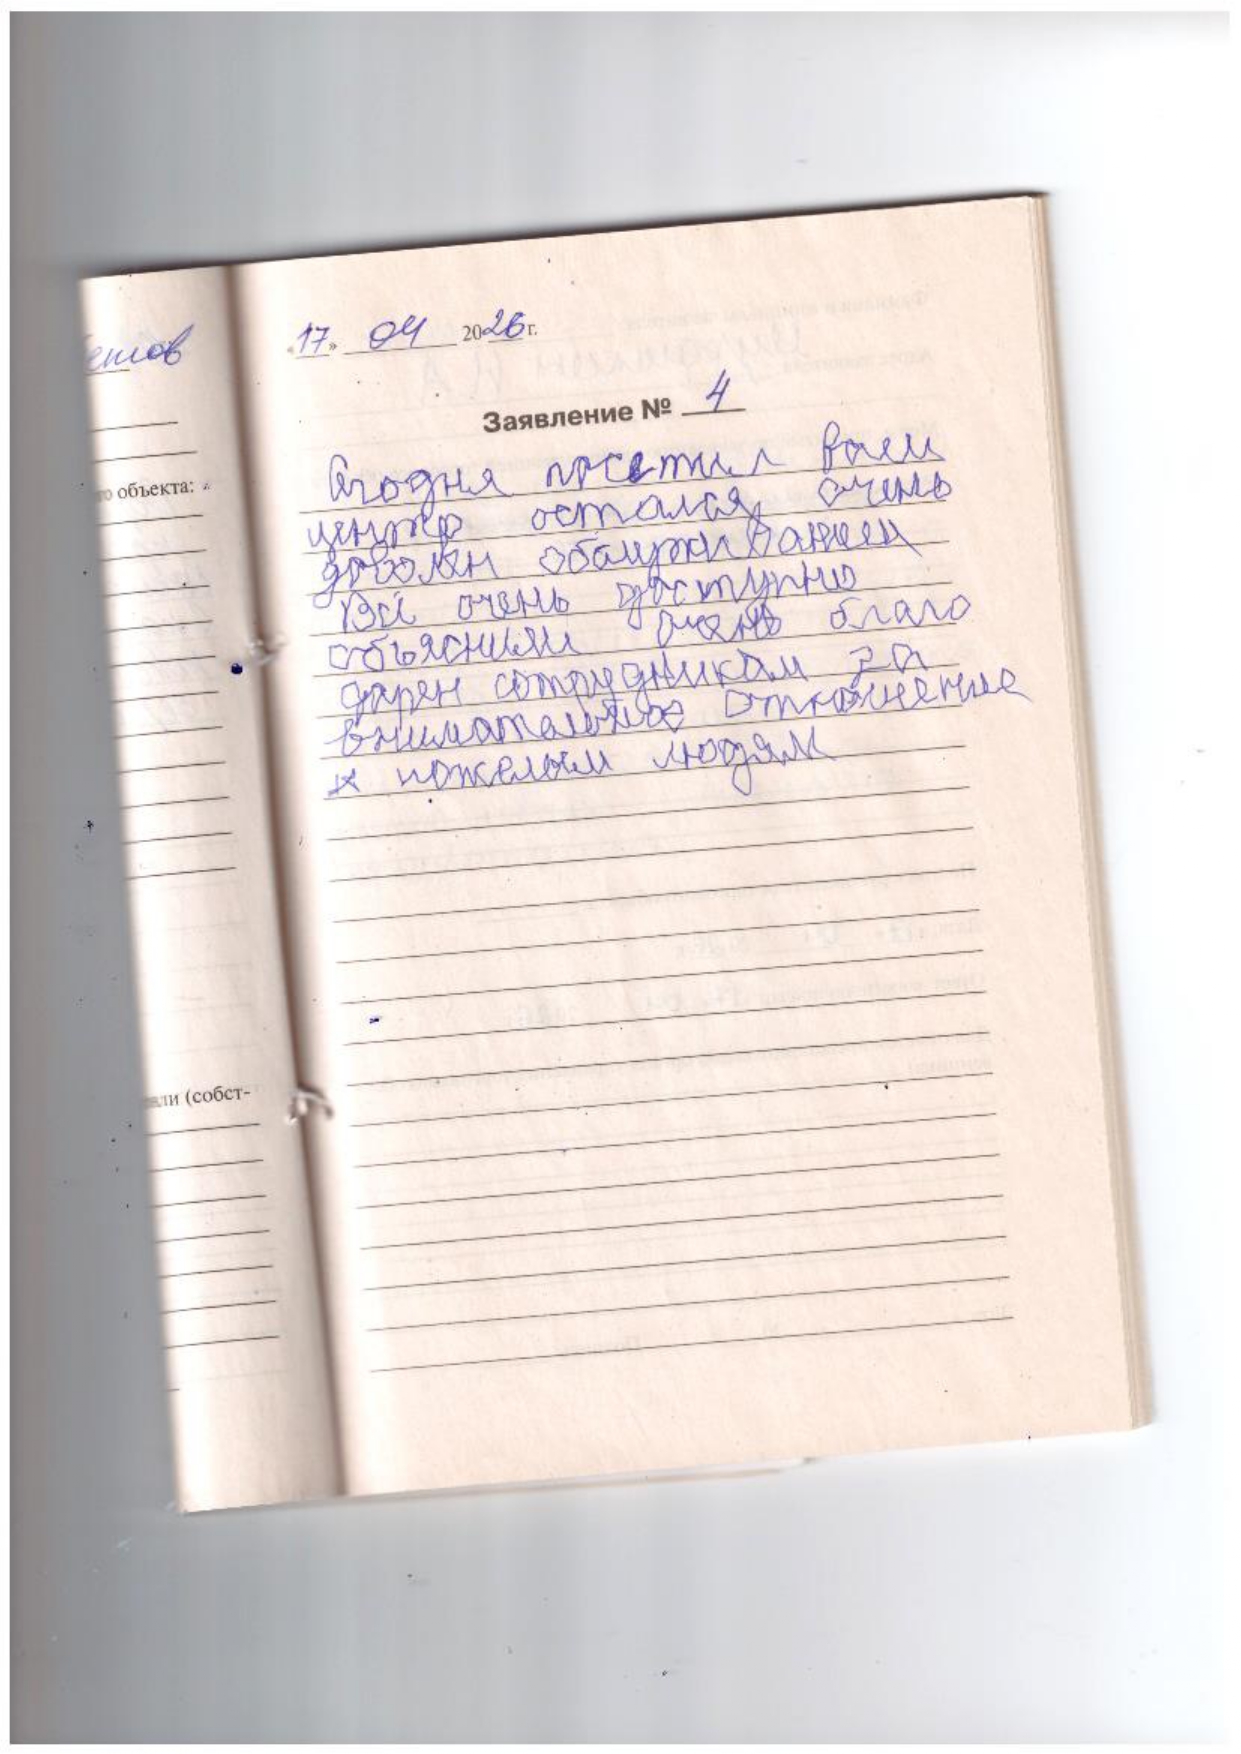 «17» 04 2026 г.
Заявление № 4
Сегодня посетил ваш
центр остался очень
доволен обслуживанием
Всё очень доступно
объяснили очень благо
дарен сотрудникам за
внимательное отношение
к пожелым людям
го объекта:
ели (собст-